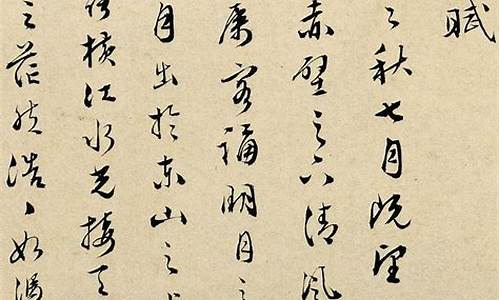 賦
之秋七月既望
赤壁之下清風
屬客誦明月之
月出於東山之上
露橫江水光接天
之茫然浩〻如馮